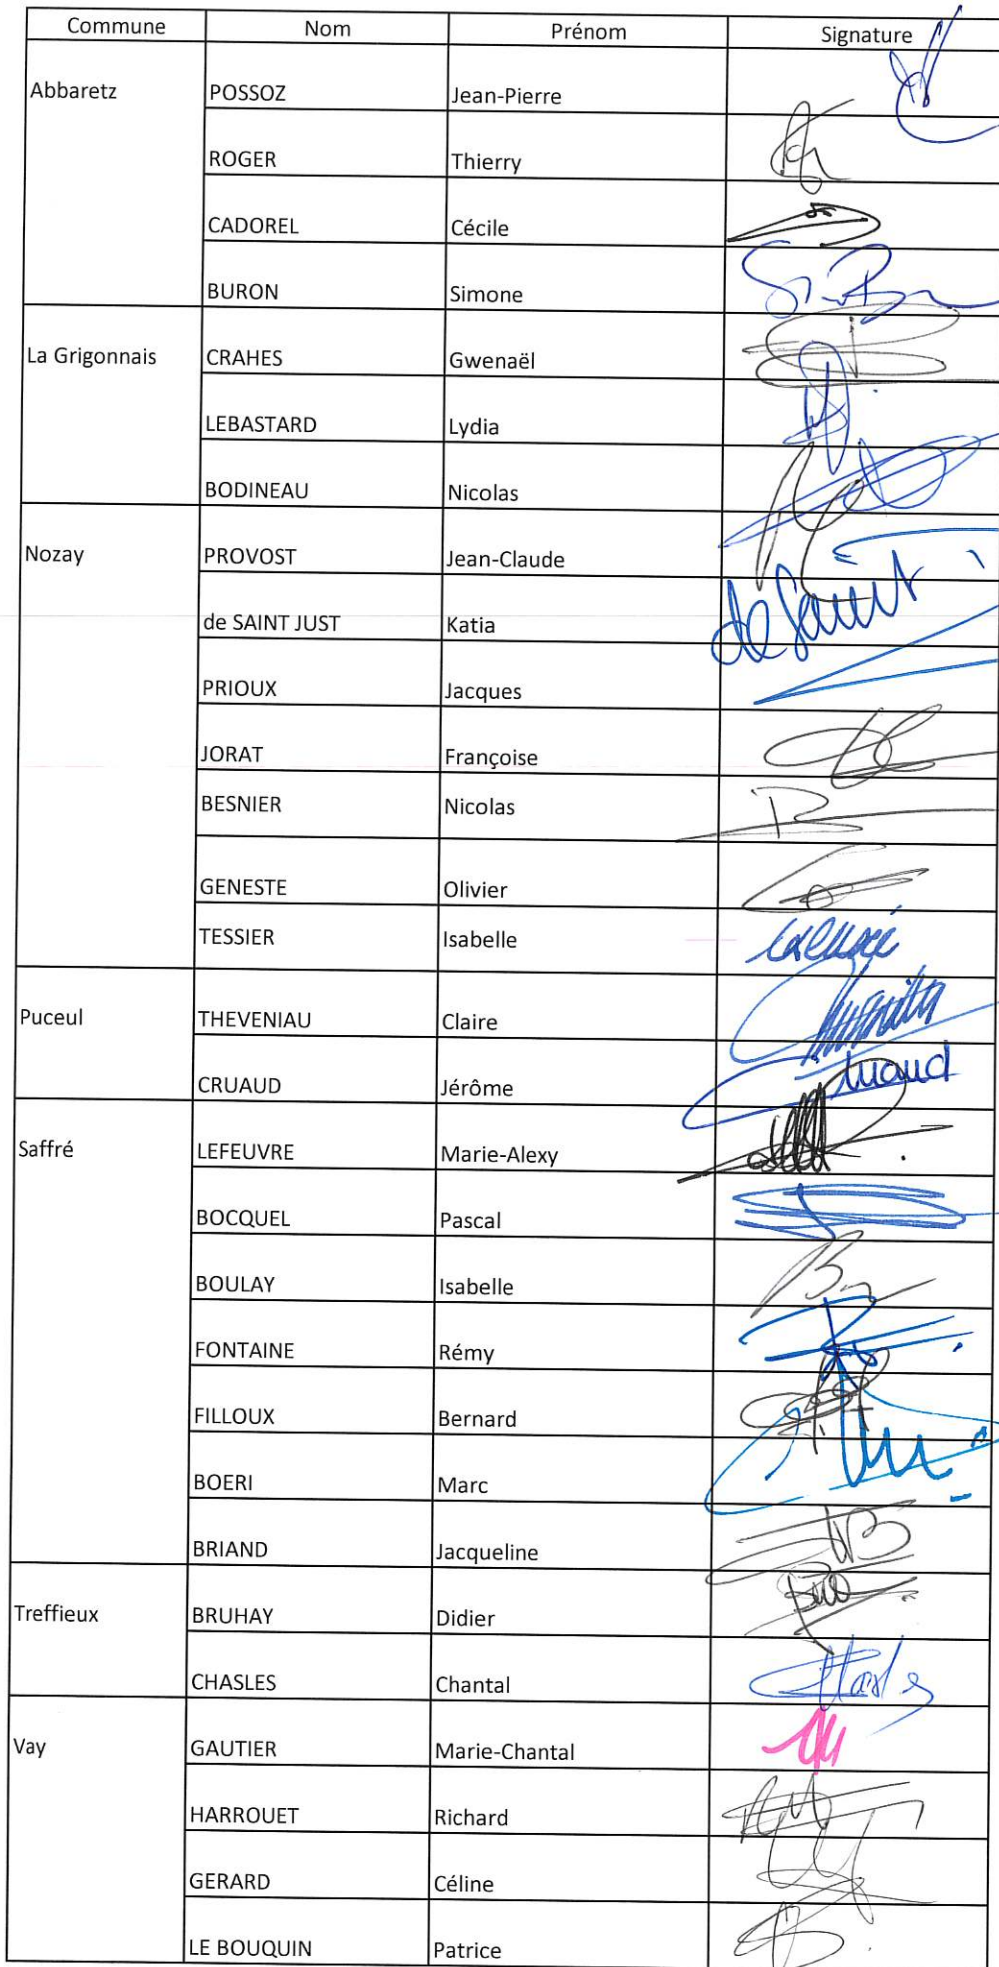 Commune Nom Prénom Signature
Abbaretz POSSOZ Jean-Pierre
ROGER Thierry
CADOREL Cécile
BURON Simone
La Grigonnais CRAHES Gwenaël
LEBASTARD Lydia
BODINEAU Nicolas
Nozay PROVOST Jean-Claude
de SAINT JUST Katia de Saint
PRIOUX Jacques
JORAT Françoise
BESNIER Nicolas
GENESTE Olivier
TESSIER Isabelle
Puceul THEVENIAU Claire
CRUAUD Jérôme
Saffré LEFEUVRE Marie-Alexy
BOCQUEL Pascal
BOULAY Isabelle
FONTAINE Rémy
FILLOUX Bernard
BOERI Marc
BRIAND Jacqueline
Treffieux BRUHAY Didier
CHASLES Chantal
Vay GAUTIER Marie-Chantal
HARROUET Richard
GERARD Céline
LE BOUQUIN Patrice